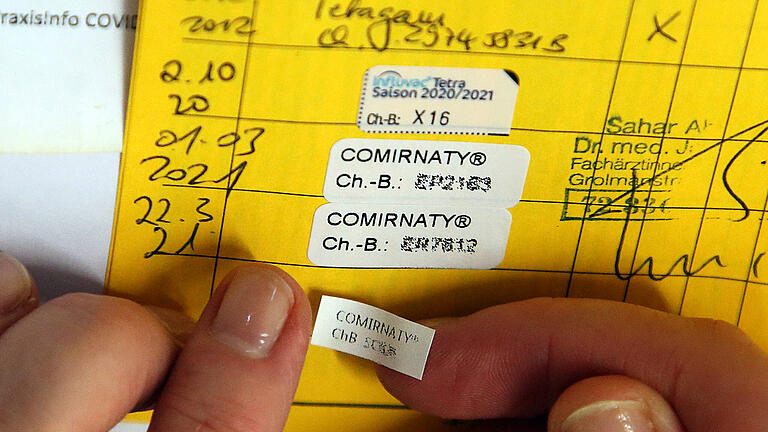 PraxisInfo COVID
2012
Tetagam
X
2.10
20
Influvac® Tetra
Saison 2020/2021
Ch-B: X16
01.03
2021
COMIRNATY®
Ch.-B.:
22.3
21
COMIRNATY®
Ch.-B.:
Sahar
Dr. med. J
Fachärztinne
Grolmanstr
COMIRNATY®
ChB